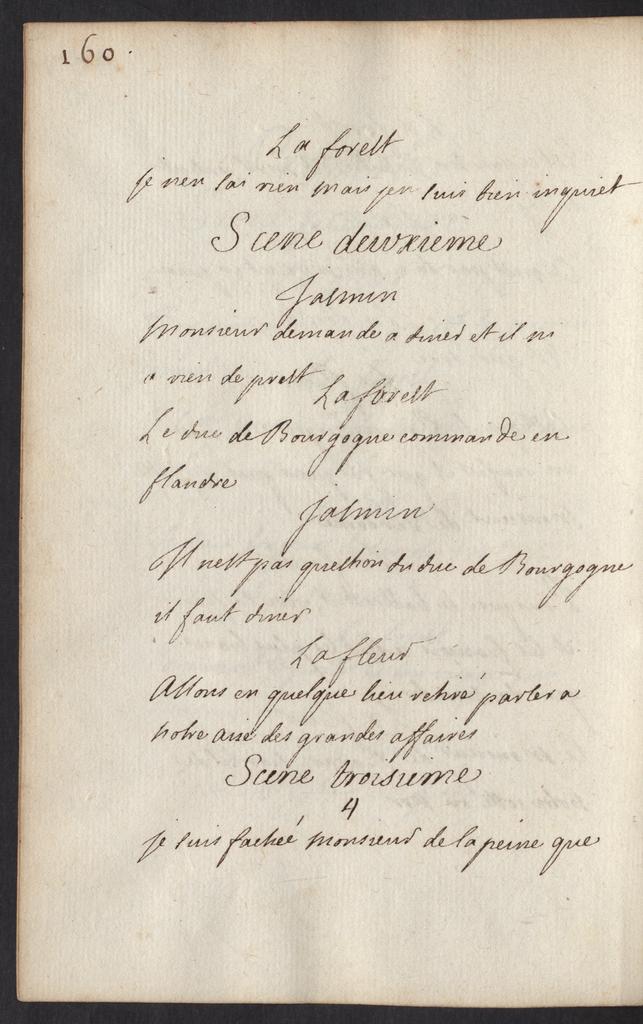 160.
La forest
je nen sai rien mais jen suis bien inquiet
Scene deuxieme
Jasmin
Monsieur demande a diner et il ni
a rien de prest
La forest
Le duc de Bourgogne commande en
flandre
Jasmin
Il nest pas question du duc de Bourgogne
il faut diner
La fleur
Allons en quelque lieu retiré parler a
notre aise des grandes affaires
Scene troisieme
4
je suis fachée monsieur de la peine que